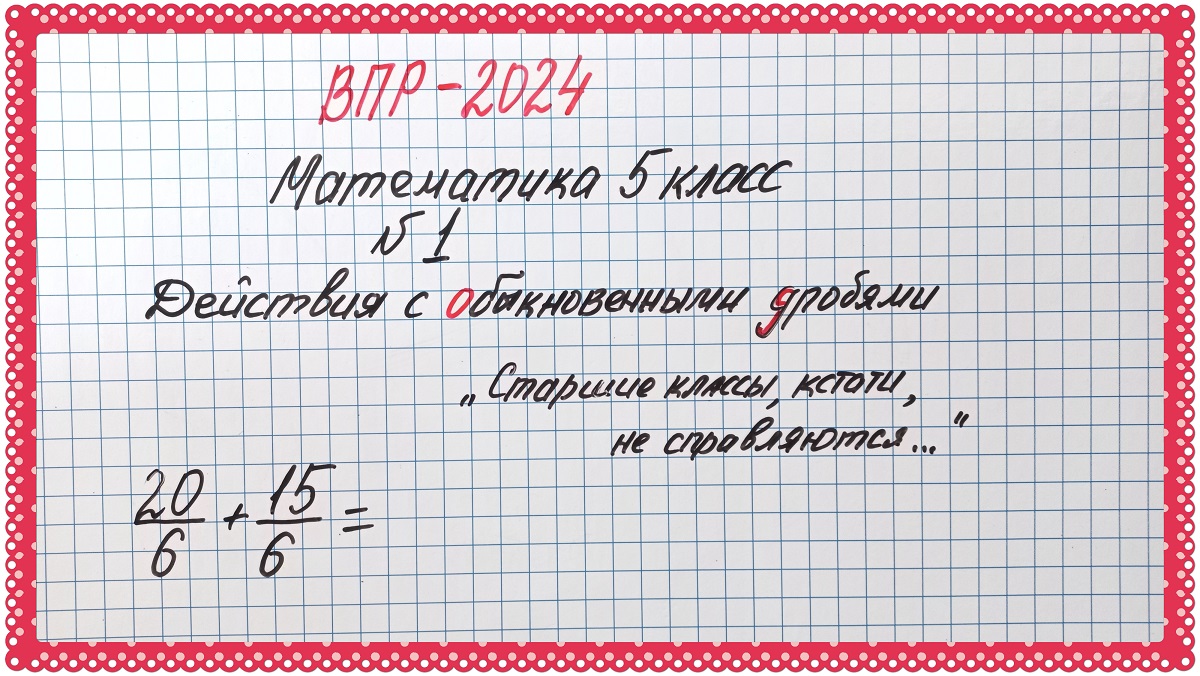 ВПР-2024
Математика 5 класс
№ 1
Действия с обыкновенными дробями
„Старшие классы, кстати,
не справляются..."
20/6 + 15/6 =